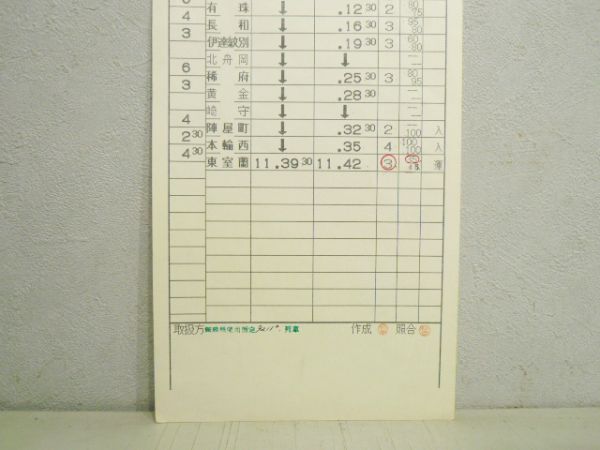 有珠 ↓ .12 30 2 80 75
3 長和 ↓ .16 30 3 95 80
3 伊達紋別 ↓ .19 30 3 60 80
北舟岡 ↓ ↓ — —
6 稀府 ↓ .25 30 3 80 95
3 黄金 ↓ .28 30 — —
崎守 ↓ ↓ — —
4 陣屋町 ↓ .32 30 2 — 100 入
2 30 本輪西 ↓ .35 4 100 100 入
4 30 東室蘭 11.39 30 11.42 3 45 運
取扱方 列車 作成 照合